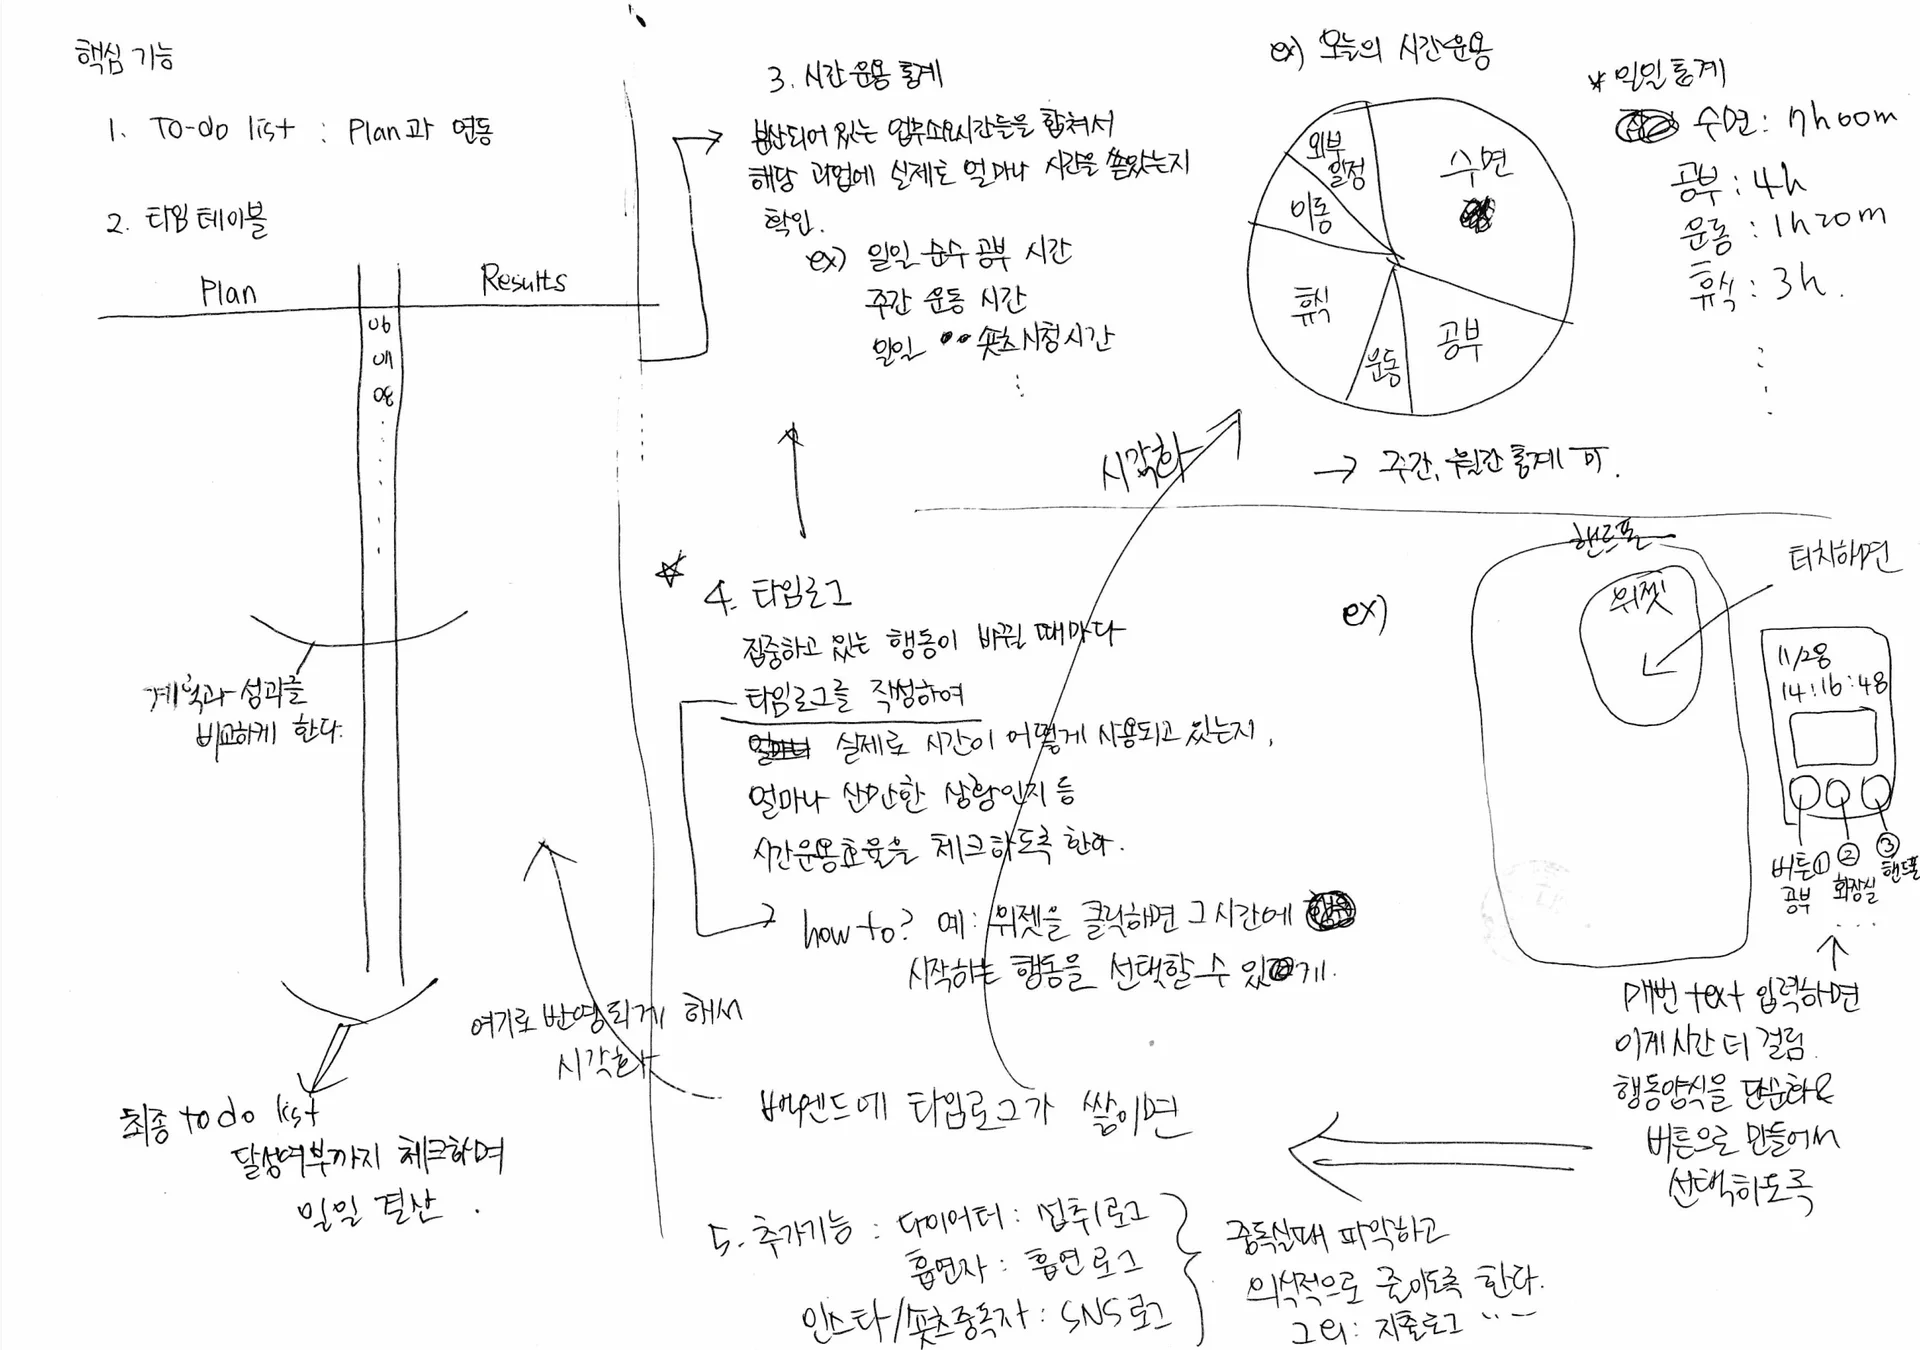 핵심 기능
1. To-do list : Plan과 연동
2. 타임 테이블
Plan
Results
06
07
08
계획과 성과를
비교하게 한다.
최종 to do list
달성여부까지 체크하며
일일 결산.
3. 시간 운용 통계
분산되어 있는 업무소요시간들을 합쳐서
해당 과업에 실제로 얼마나 시간을 쏟았는지
확인.
ex) 일일 순수 공부 시간
주간 운동 시간
일일 숏츠시청시간
ex) 오늘의 시간운용
외부
일정
수면
이동
휴식
운동
공부
* 일일통계
수면: 7h00m
공부: 4h
운동: 1h20m
휴식: 3h.
시각화
→ 주간, 월간통계 可.
☆ 4. 타임로그
집중하고 있는 행동이 바뀔 때마다
타임로그를 작성하여
실제로 시간이 어떻게 사용되고 있는지,
얼마나 산만한 상황인지 등
시간운용효율을 체크하도록 한다.
how to? 예: 위젯을 클릭하면 그 시간에
시작하는 행동을 선택할 수 있게.
여기로 반영되게 해서
시각화
백엔드에 타임로그가 쌓이면
ex)
핸드폰
위젯
터치하면
11/28
14:16:48
버튼① ② ③
공부 화장실 핸드폰
매번 text 입력하면
이게 시간 더 걸림.
행동양식을 단순화&
버튼으로 만들어서
선택하도록
5. 추가기능 : 다이어터 : 섭취로그
흡연자 : 흡연로그
인스타/숏츠중독자 : SNS로그
중독실태 파악하고
의식적으로 줄이도록 한다.
그외: 지출로그 ...